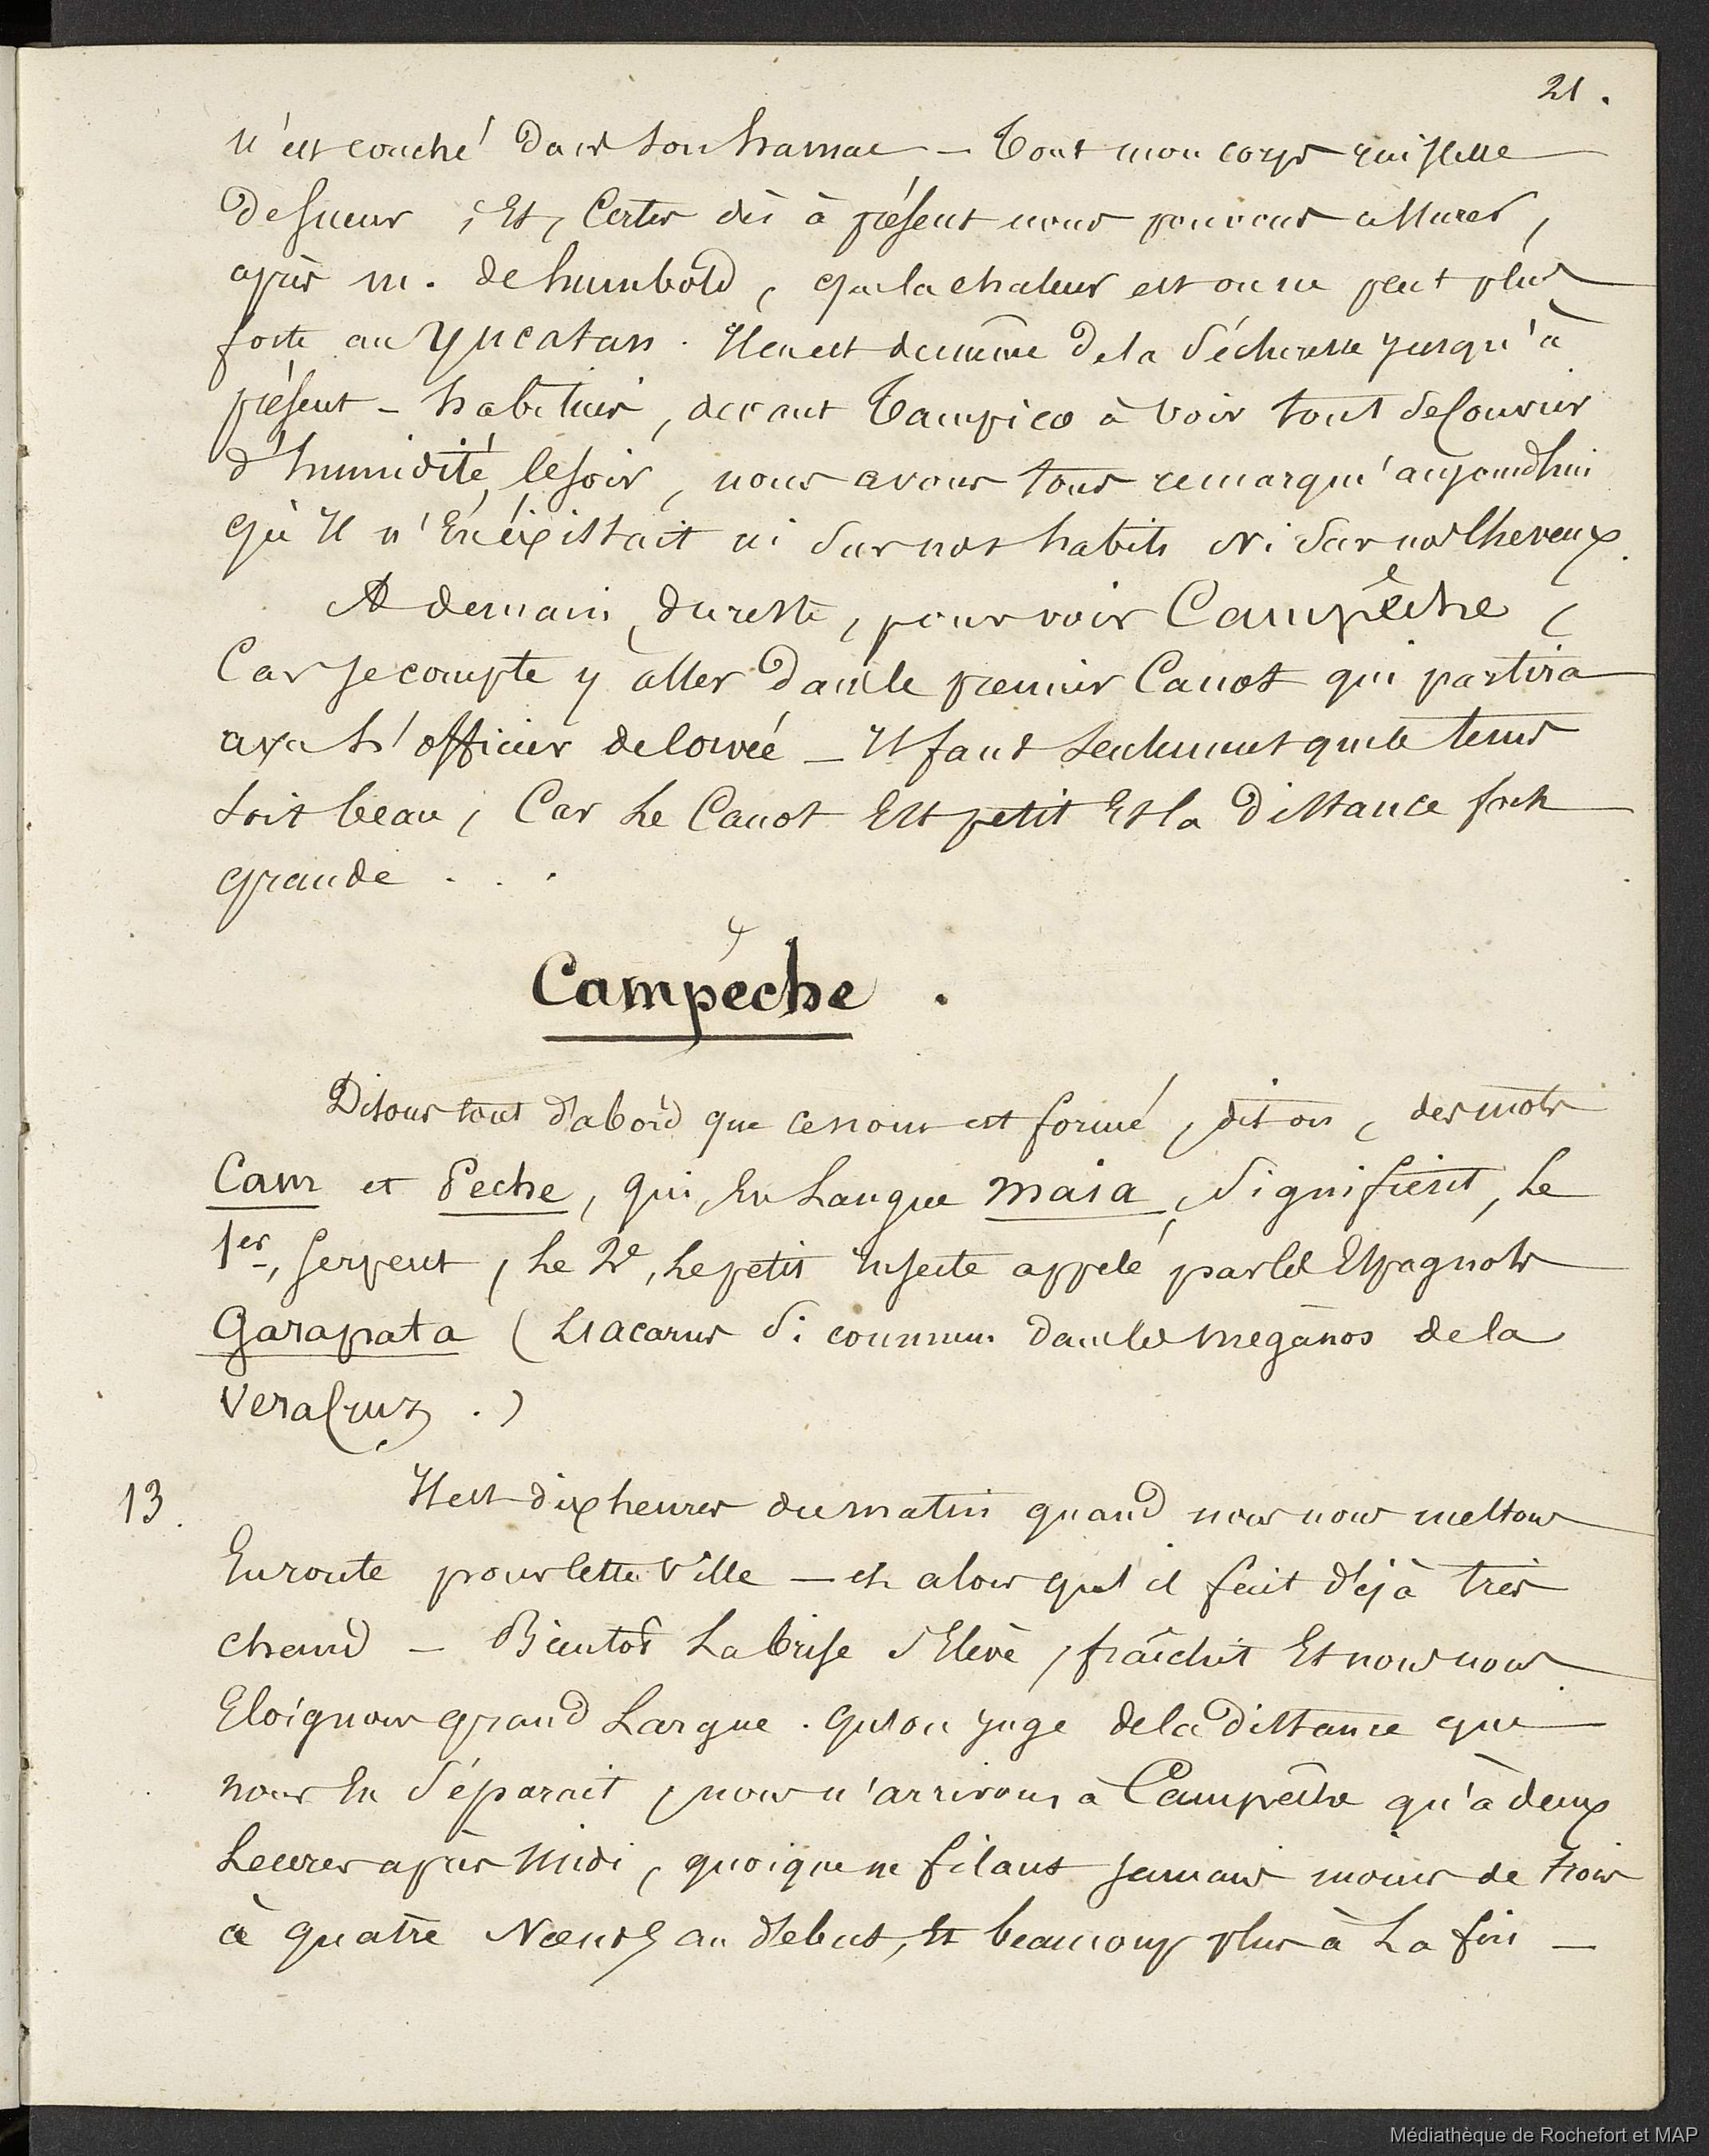 21.
n'est couché dans son hamac – Tout mon corps ruisselle
de sueur ; Et, Certes dès à présent nous pouvons assurer,
après m. de humbold, que la chaleur est on ne peut plus
forte au Yucatan. Il en est de même de la Sécheresse jusqu'à
présent – habitués, devant Tampico à voir tout se Couvrir
d'humidité, le soir, nous avons tous remarqué aujourdhui
qu'Il n'En éxistait ni Sur nos habits Ni Sur nos Cheveux.
A demain, du reste, pour voir Campêche,
Car je compte y aller dans le premier Canot qui partira
avec L'officier de corvée – Il faut Seulement que le tems
soit beau, Car Le Canot Est petit Et la Distance fort
grande . . .
Campêche.
Disons tout d'abord que ce nom est formé, dit on, des mots
Cam et Peche, qui, En Langue maïa, Signifient, Le
1er, Serpent, Le 2e, Le petit insecte appelé par les Espagnols
Garapata (L'acarus Si commun dans les megânos de la
VeraCruz.)
13. Il est dix heures du matin quand nous nous mettons
En route pour Cette Ville – et alors qu'il fait déjà très
chaud – Bientôt La brise s'Elève, fraîchit Et nous nous
Eloignons grand Largue. Qu'on juge de la distance qui
nous En Séparait, nous n'arrivons à Campêche qu'à deux
heures après Midi, quoique ne filant jamais moins de trois
à quatre Nœuds au début, Et beaucoup plus à La fin –
Médiathèque de Rochefort et MAP